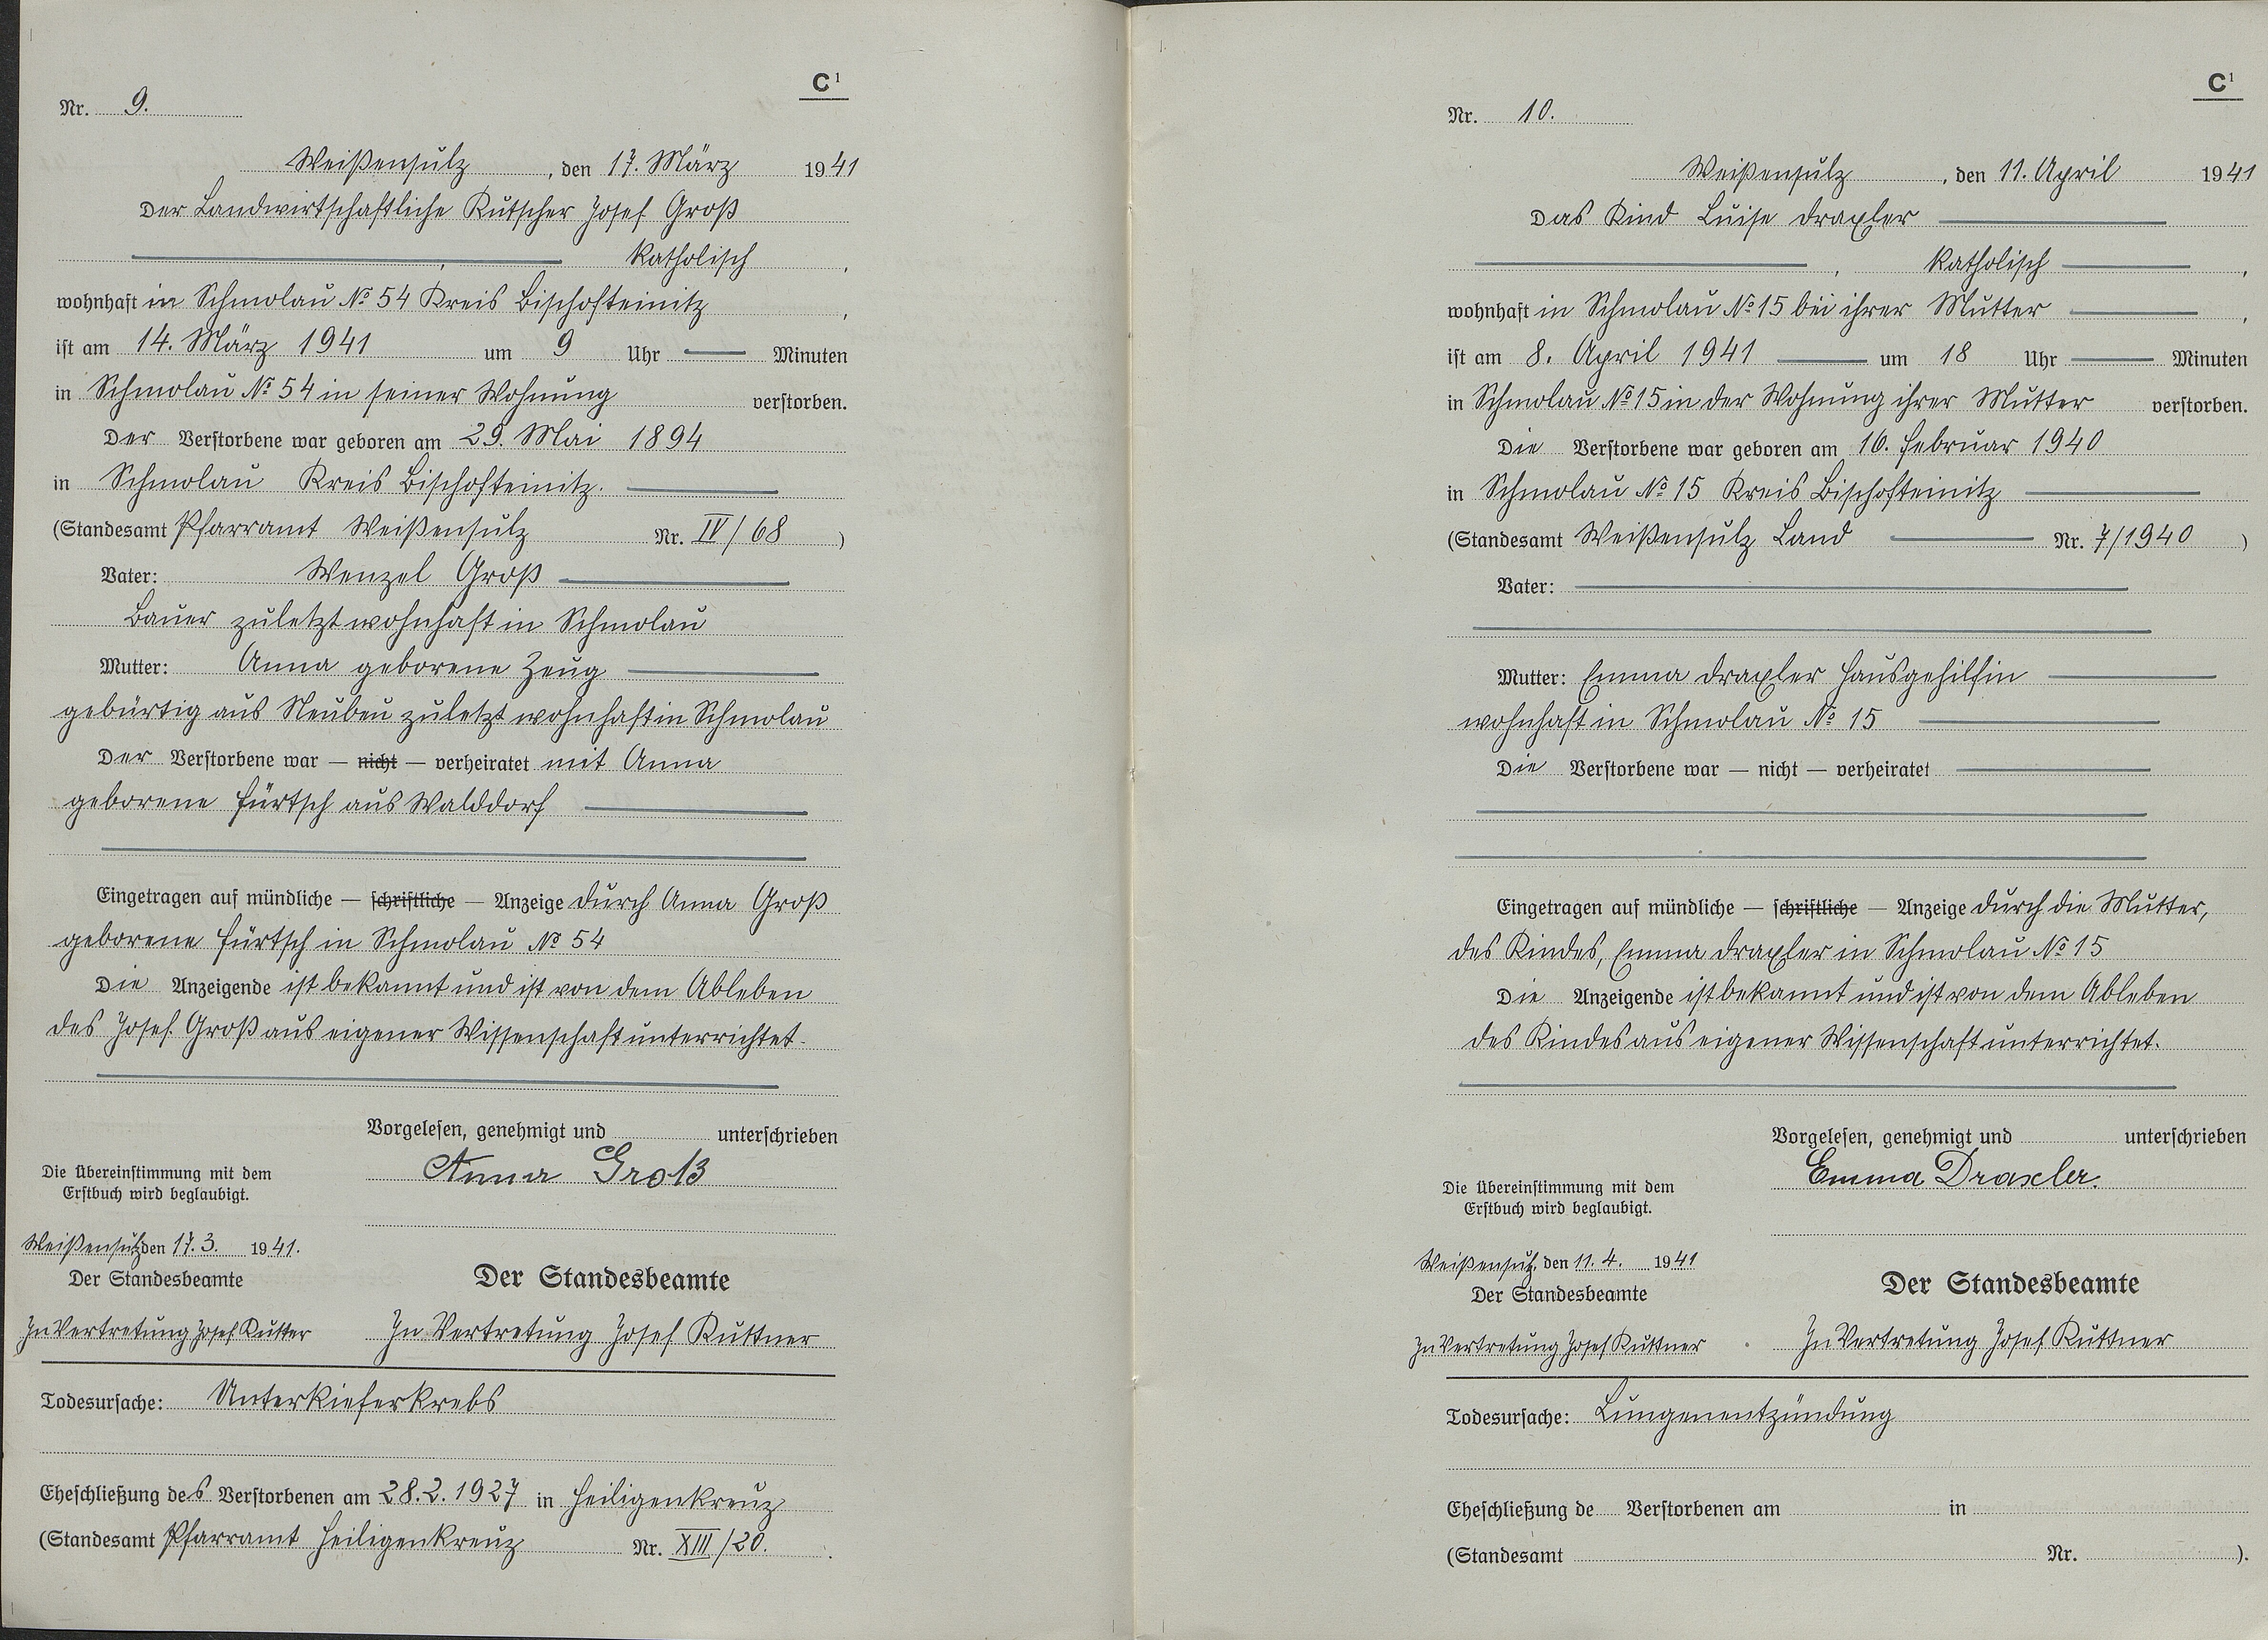 C¹
Nr. 9.
Weißensulz, den 17. März 1941
Der Landwirtschaftliche Kutscher Josef Groß
, katholisch,
wohnhaft in Schmolau No 54 Kreis Bischofteinitz,
ist am 14. März 1941 um 9 Uhr — Minuten
in Schmolau No 54 in seiner Wohnung verstorben.
Der Verstorbene war geboren am 29. Mai 1894
in Schmolau Kreis Bischofteinitz.
(Standesamt Pfarramt Weißensulz Nr. IV/68)
Vater: Wenzel Groß
Bauer zuletzt wohnhaft in Schmolau
Mutter: Anna geborene Zeug
gebürtig aus Neubau zuletzt wohnhaft in Schmolau
Der Verstorbene war — nicht — verheiratet mit Anna
geborene Fürtsch aus Walddorf
Eingetragen auf mündliche — schriftliche — Anzeige durch Anna Groß
geborene Fürtsch in Schmolau No 54
Die Anzeigende ist bekannt und ist von dem Ableben
des Josef Groß aus eigener Wissenschaft unterrichtet.
Vorgelesen, genehmigt und unterschrieben
Anna Groß
Die Übereinstimmung mit dem
Erstbuch wird beglaubigt.
Weißensulz den 17. 3. 1941.
Der Standesbeamte
In Vertretung Josef Kutter
Der Standesbeamte
In Vertretung Josef Kuttner
Todesursache: Unterkieferkrebs
Eheschließung des Verstorbenen am 28.2.1927 in Heiligenkreuz
(Standesamt Pfarramt Heiligenkreuz Nr. XIII/20.
C¹
Nr. 10.
Weißensulz, den 11. April 1941
Das Kind Luise Draxler
, katholisch,
wohnhaft in Schmolau No 15 bei ihrer Mutter,
ist am 8. April 1941 um 18 Uhr — Minuten
in Schmolau No 15 in der Wohnung ihrer Mutter verstorben.
Die Verstorbene war geboren am 16. Februar 1940
in Schmolau No 15 Kreis Bischofteinitz
(Standesamt Weißensulz Land Nr. 7/1940)
Vater:
Mutter: Emma Draxler Hausgehilfin
wohnhaft in Schmolau No 15
Die Verstorbene war — nicht — verheiratet
Eingetragen auf mündliche — schriftliche — Anzeige durch die Mutter,
des Kindes, Emma Draxler in Schmolau No 15
Die Anzeigende ist bekannt und ist von dem Ableben
des Kindes aus eigener Wissenschaft unterrichtet.
Vorgelesen, genehmigt und unterschrieben
Emma Draxler.
Die Übereinstimmung mit dem
Erstbuch wird beglaubigt.
Weißensulz, den 11. 4. 1941
Der Standesbeamte
In Vertretung Josef Kuttner
Der Standesbeamte
In Vertretung Josef Kuttner
Todesursache: Lungenentzündung
Eheschließung de Verstorbenen am in
(Standesamt Nr. ).